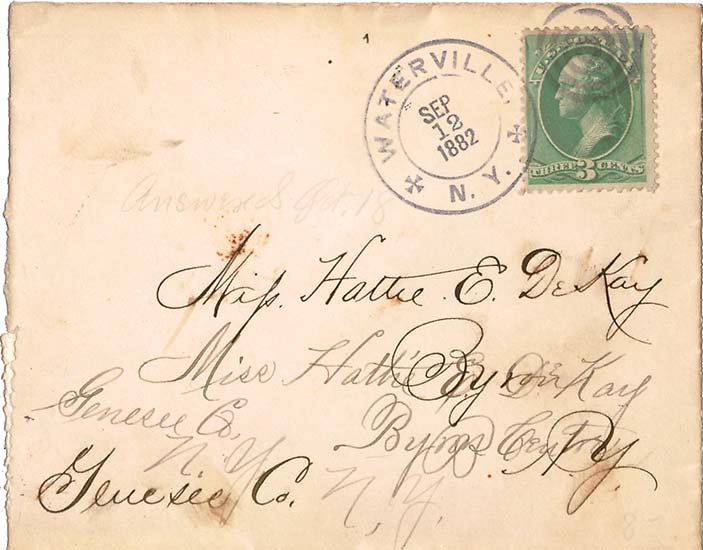 WATERVILLE, N. Y.
SEP
12
1882
U.S. POSTAGE
THREE 3 CENTS
Answered Oct. 18
Miss. Hattie E. DeKay
Miss Hattie E. De Kay
Byron
Genesee Co,
N. Y.
Byron Centre,
N. Y.
Genesee Co.
N. Y.